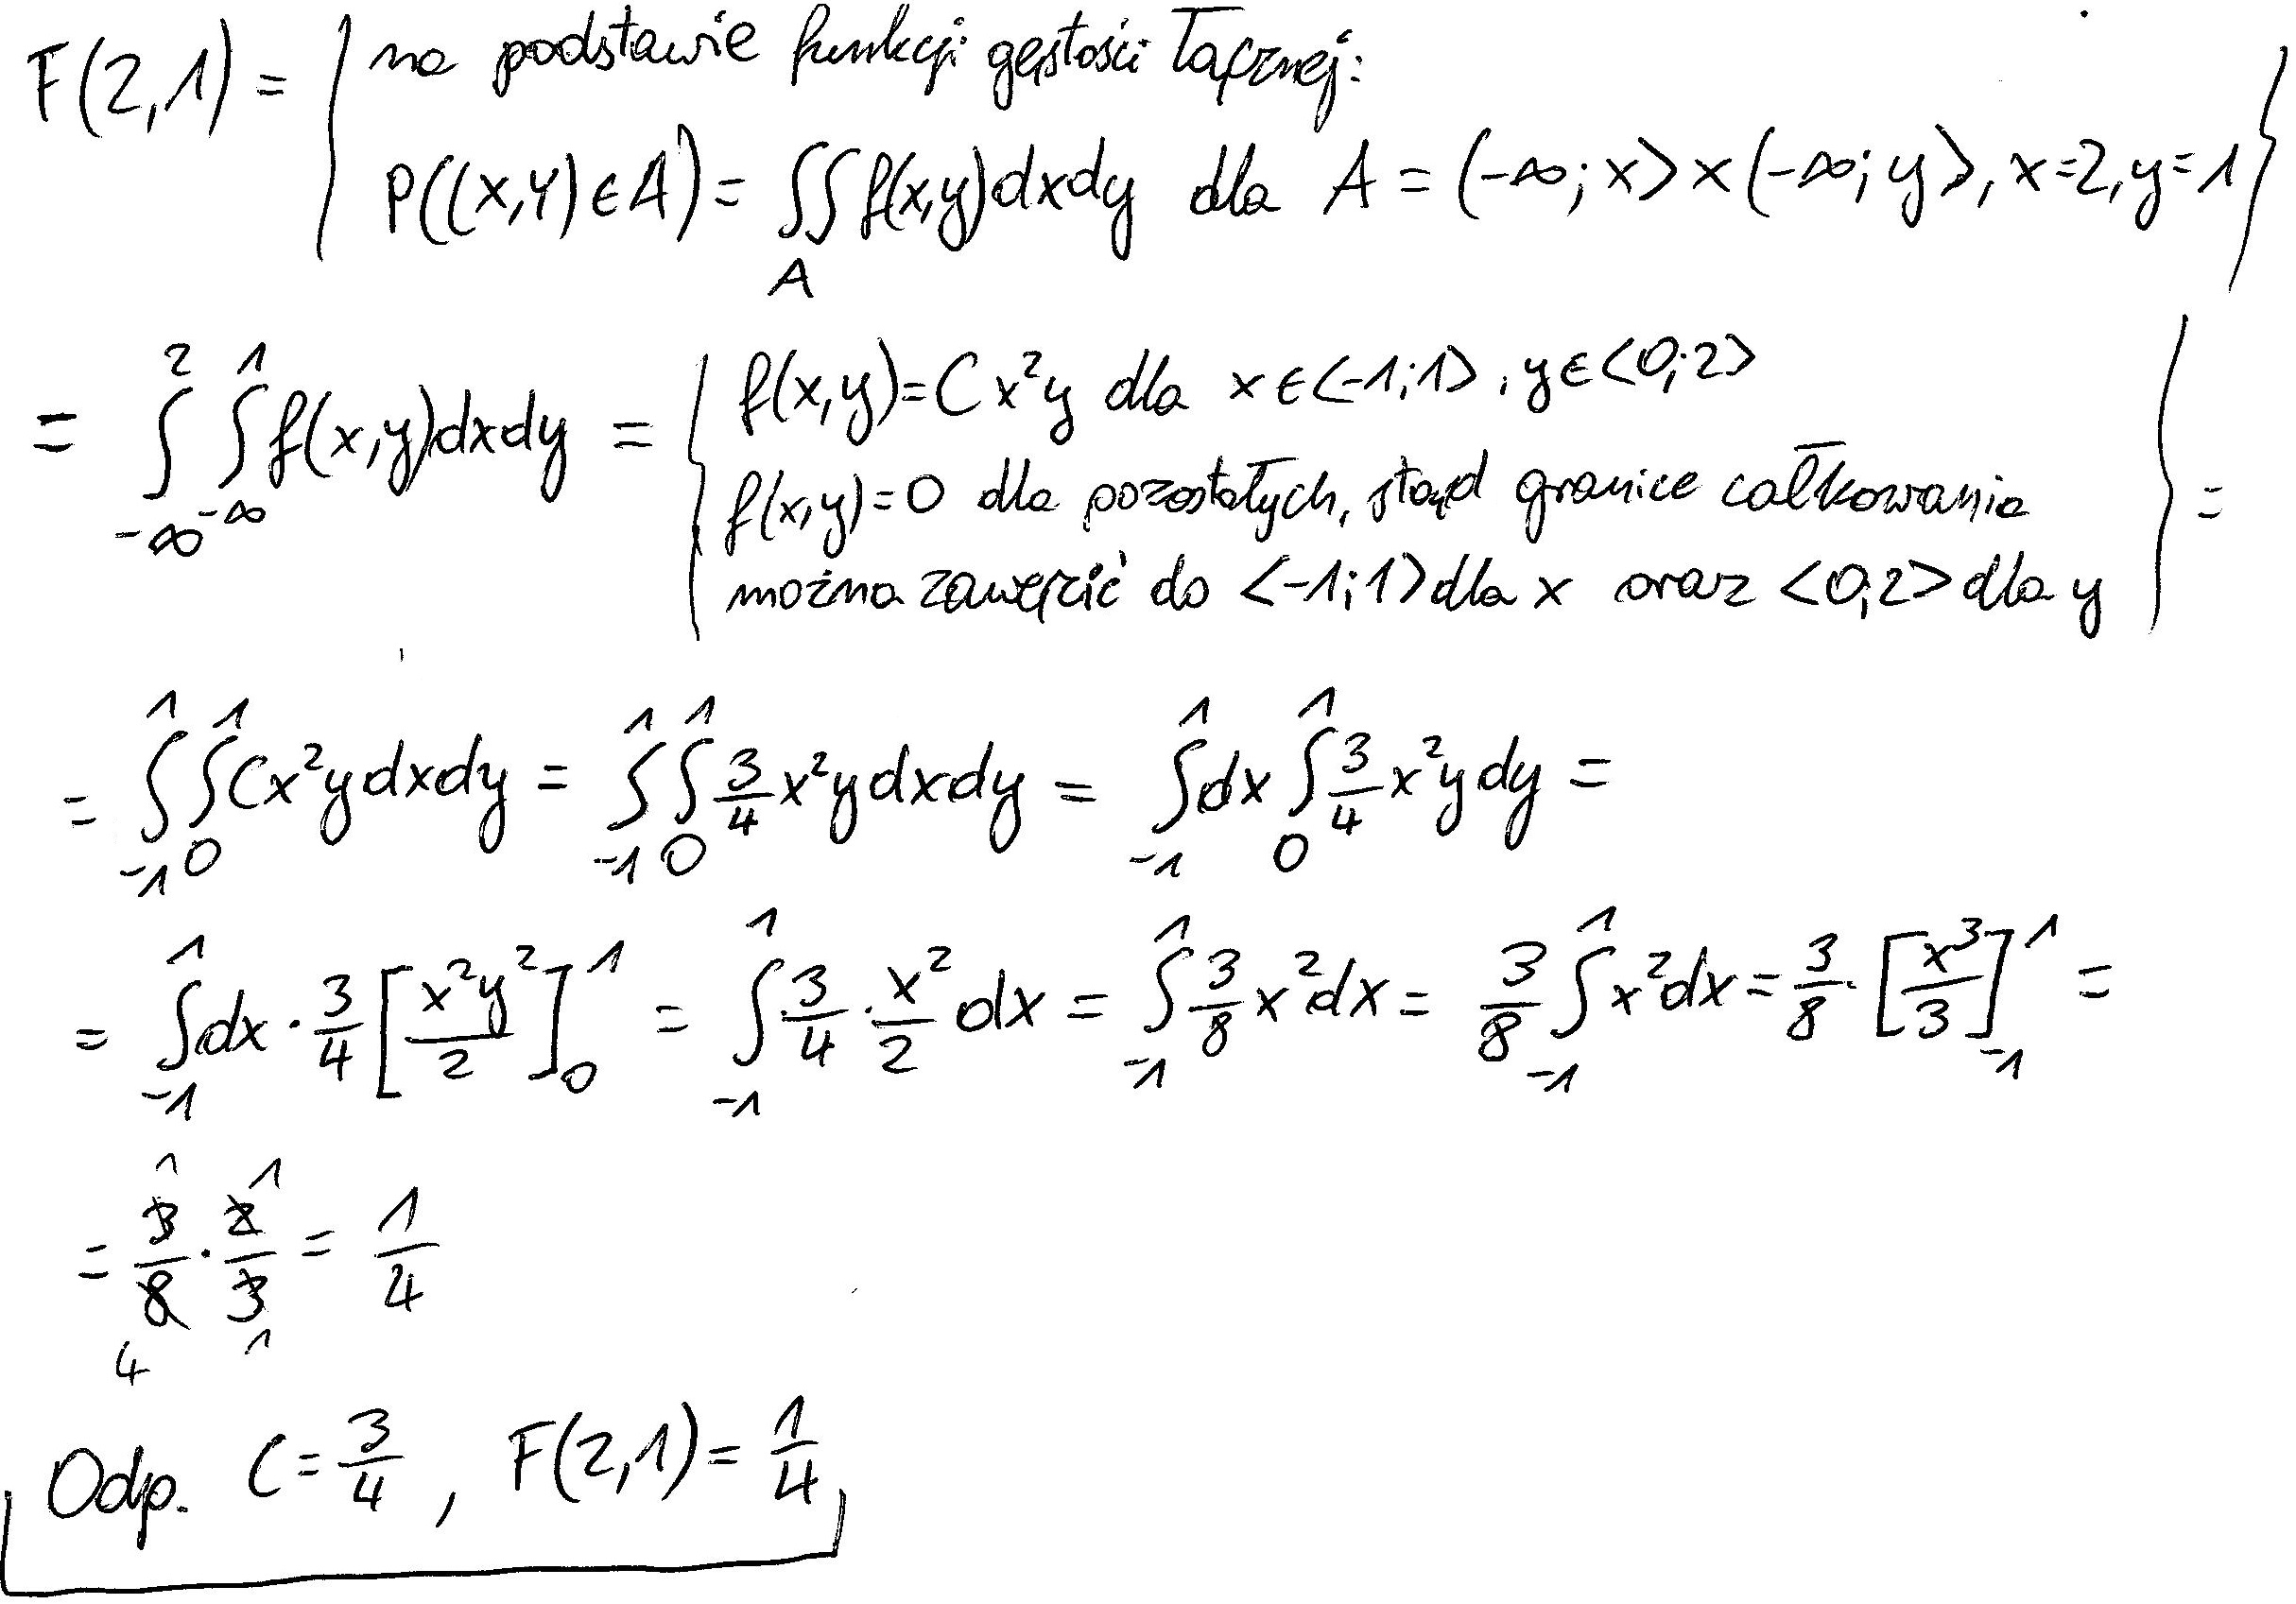 F(2,1) = { na podstawie funkcji gęstości łącznej:
P((X,Y) ∈ A) = ∬_A f(x,y)dxdy dla A = (-∞; x> × (-∞; y>, x=2, y=1 }
= ∫_{-∞}^{2} ∫_{-∞}^{1} f(x,y)dxdy = { f(x,y)=Cx²y dla x∈<-1;1>, y∈<0;2>
f(x,y)=0 dla pozostałych, stąd granice całkowania
można zawęzić do <-1;1> dla x oraz <0;2> dla y } =
= ∫_{-1}^{1} ∫_{0}^{1} Cx²y dxdy = ∫_{-1}^{1} ∫_{0}^{1} 3/4 x²y dxdy = ∫_{-1}^{1} dx ∫_{0}^{1} 3/4 x²y dy =
= ∫_{-1}^{1} dx · 3/4 [x²y²/2]_{0}^{1} = ∫_{-1}^{1} 3/4 · x²/2 dx = ∫_{-1}^{1} 3/8 x²dx = 3/8 ∫_{-1}^{1} x²dx = 3/8 · [x³/3]_{-1}^{1} =
= 3/8 · 2/3 = 1/4
Odp. C = 3/4, F(2,1) = 1/4